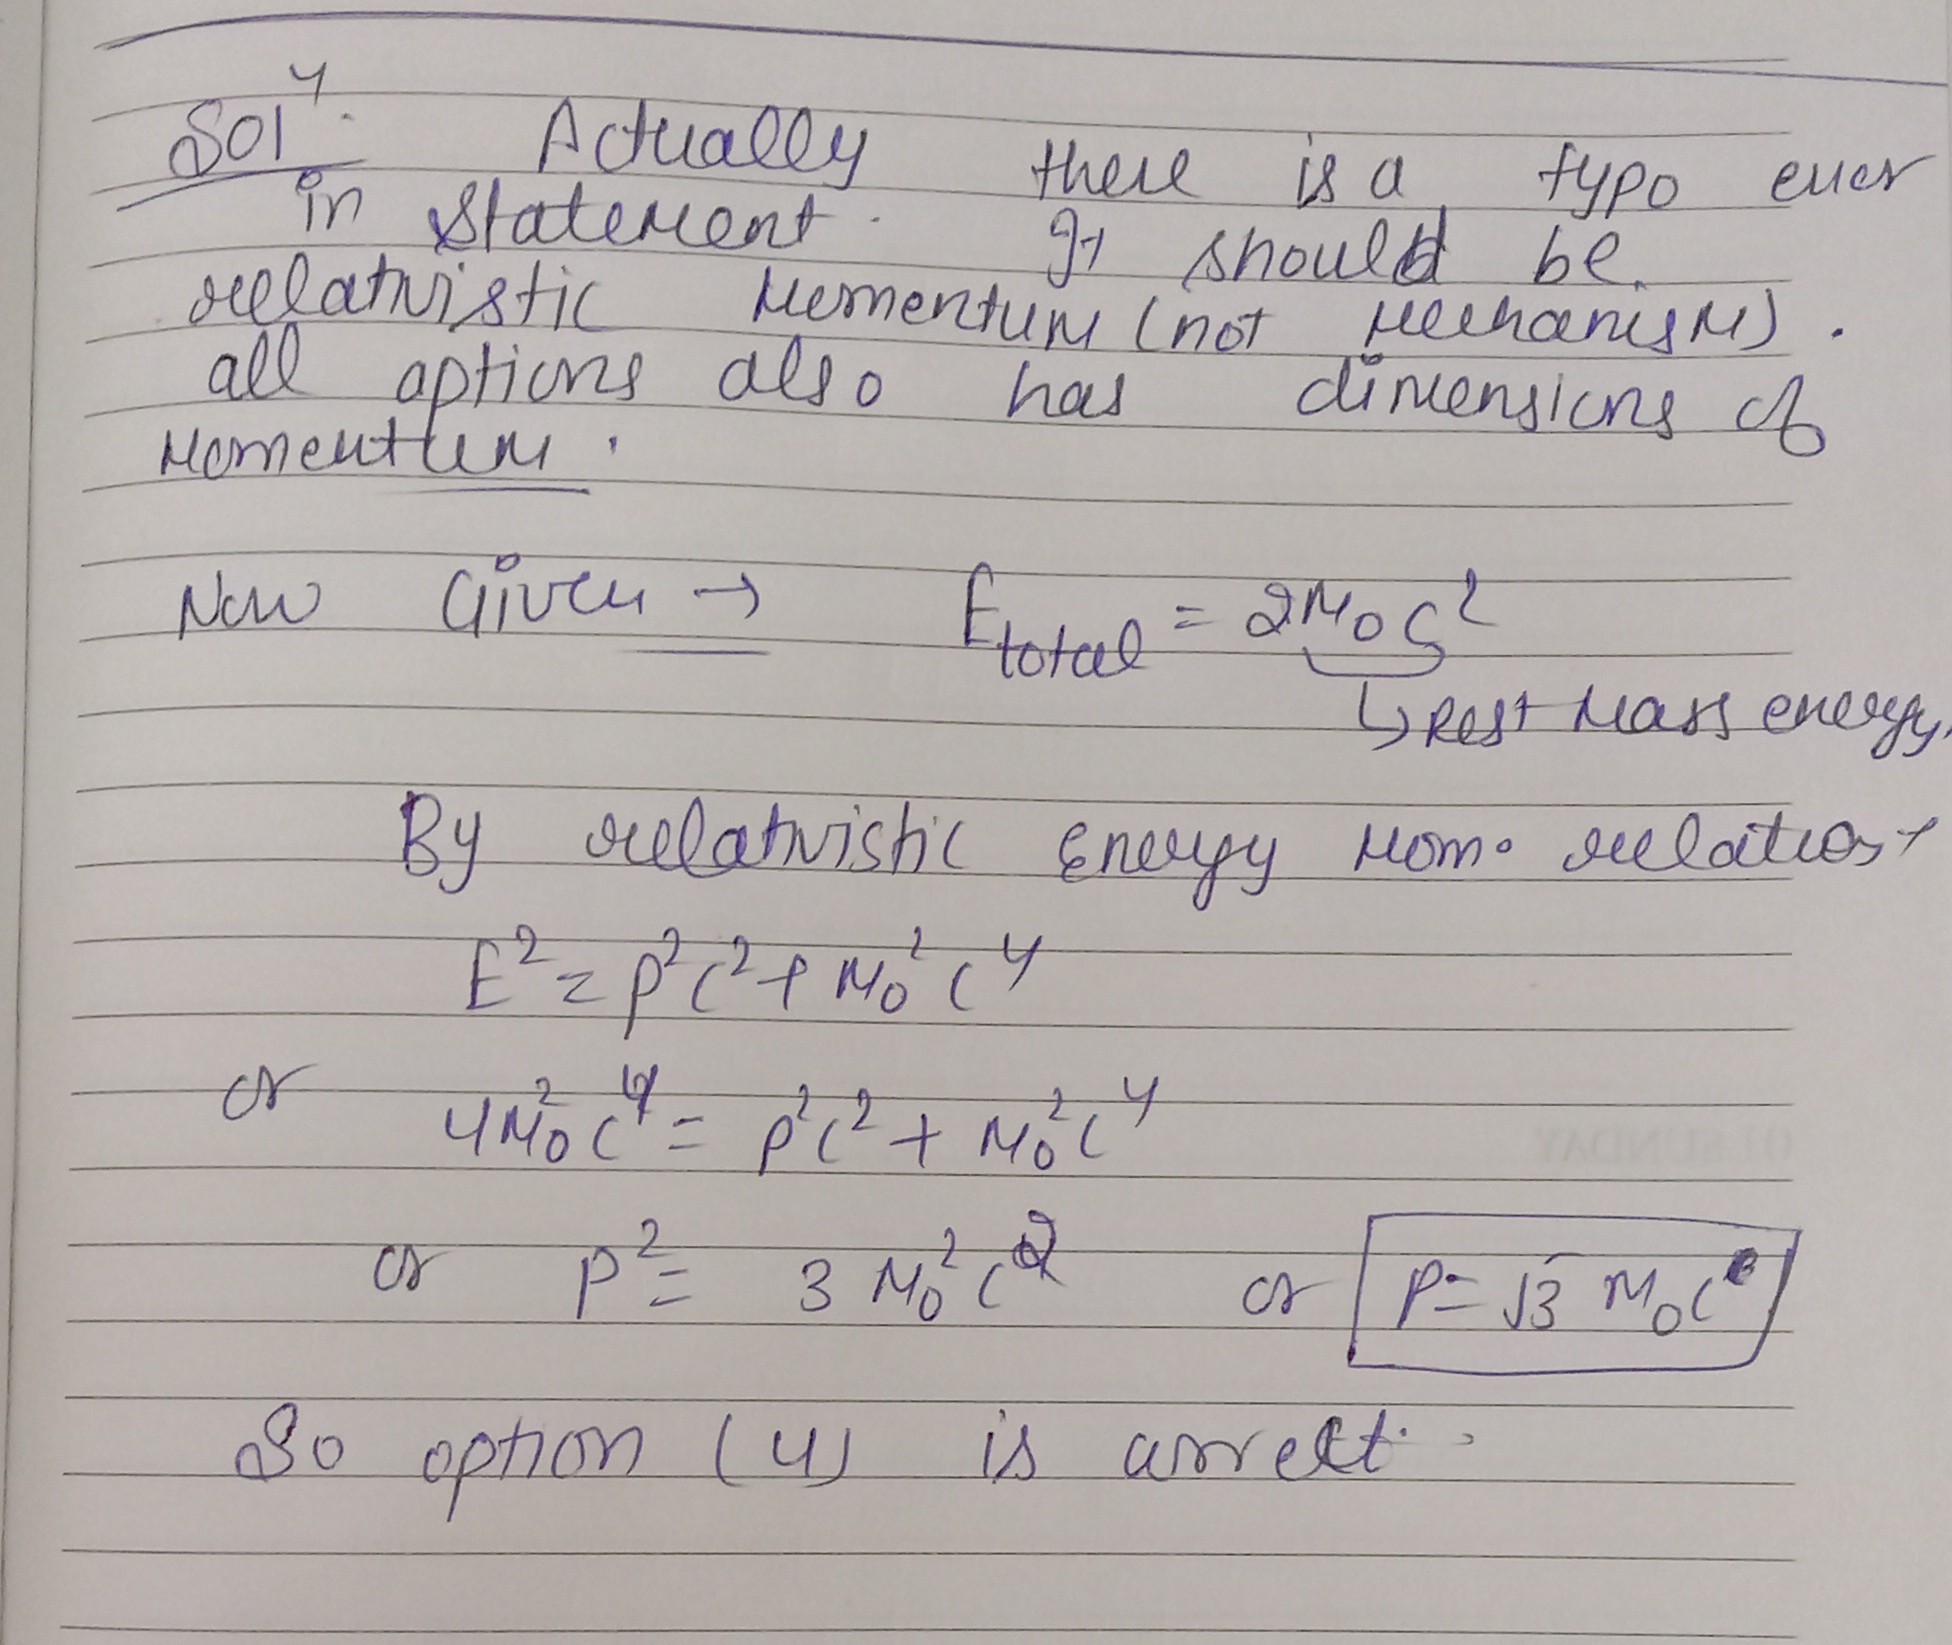 Solⁿ. Actually there is a typo error
in statement. It should be
relativistic momentum (not mechanism).
all options also has dimensions of
momentum.
Now Given → E_total = 2M₀C²
↳ Rest mass energy.
By relativistic energy mom. relation
E² = P²C² + M₀²C⁴
or 4M₀²C⁴ = P²C² + M₀²C⁴
or P² = 3 M₀²C² or P = √3 M₀C
So option (4) is correct.
01 SUNDAY